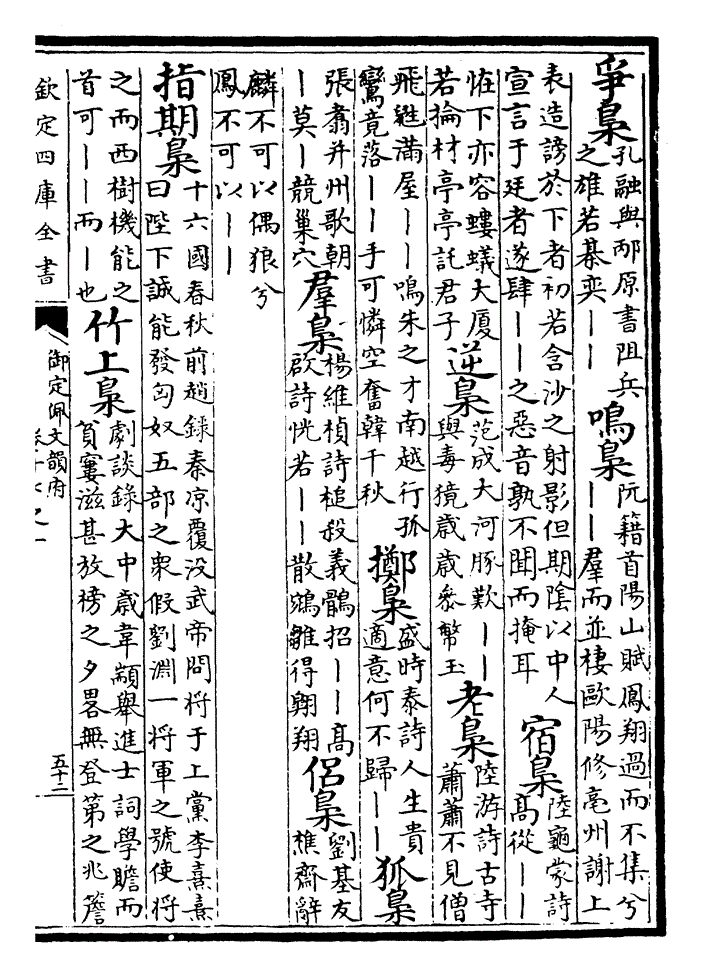 爭梟孔融與邴原書阻兵
之雄若棊奕｜｜
鳴梟阮籍首陽山賦鳳翔過而不集兮
｜｜羣而並棲歐陽修亳州謝上
表造謗於下者初若含沙之射影但期陰以中人
宣言于廷者遂肆｜｜之惡音孰不聞而掩耳
宿梟陸龜蒙詩
高從｜｜
恠下亦容螻蟻大厦
若掄材亭亭託君子
逆梟范成大河豚歎｜｜
與毒獍歲歲參幣玉
老梟陸游詩古寺
蕭蕭不見僧
飛鼪滿屋｜｜鳴朱之才南越行孤
鸞竟落｜｜手可憐空奮韓千秋
擲梟盛時泰詩人生貴
適意何不歸｜｜
狐梟
張翥幷州歌朝
｜莫｜競巢穴
羣梟楊維楨詩槌殺義鶻招｜｜高
啟詩恍若｜｜散鵷雛得翺翔
侶梟劉基友
樵齋辭
麟不可以偶狼兮
鳳不可以｜｜
指期梟十六國春秋前趙錄秦凉覆没武帝問将于上黨李熹熹
曰陛下誠能發匈奴五部之衆假劉淵一将軍之號使将
之而西樹機能之
首可｜｜而｜也
竹上梟劇談錄大中歲韋顓舉進士詞學贍而
貧窶滋甚放榜之夕畧無登第之兆簷
欽定四庫全書
御定佩文韻府
五十二